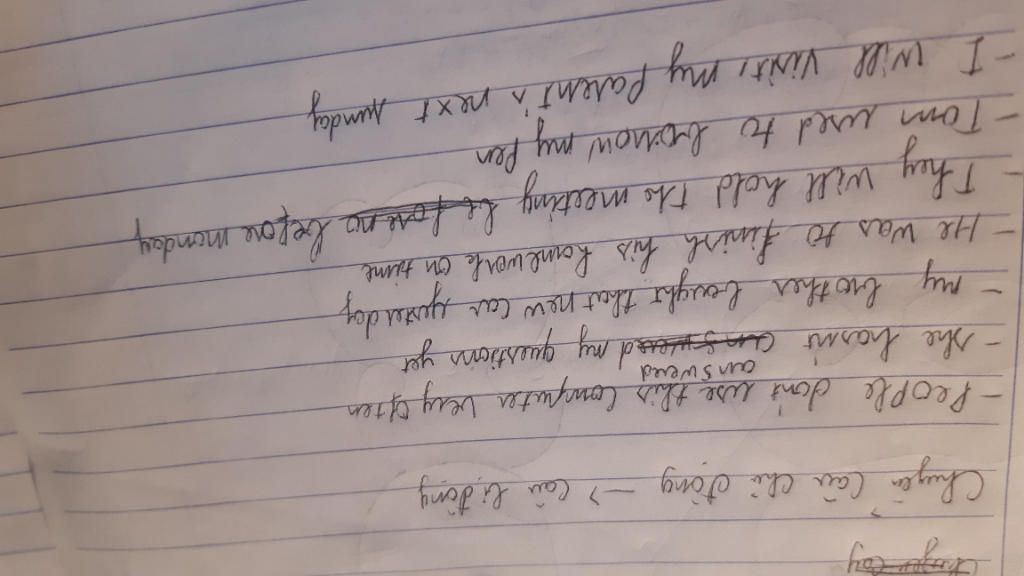 Chuyển câu chủ động → câu bị động
- People don't use this computer very often
- she hasn't answered my questions yet
- my brother bought that new car yesterday
- He was to finish his homework on time
- They will hold the meeting before monday
- Tom used to borrow my pen
- I will visit my parent's next sunday